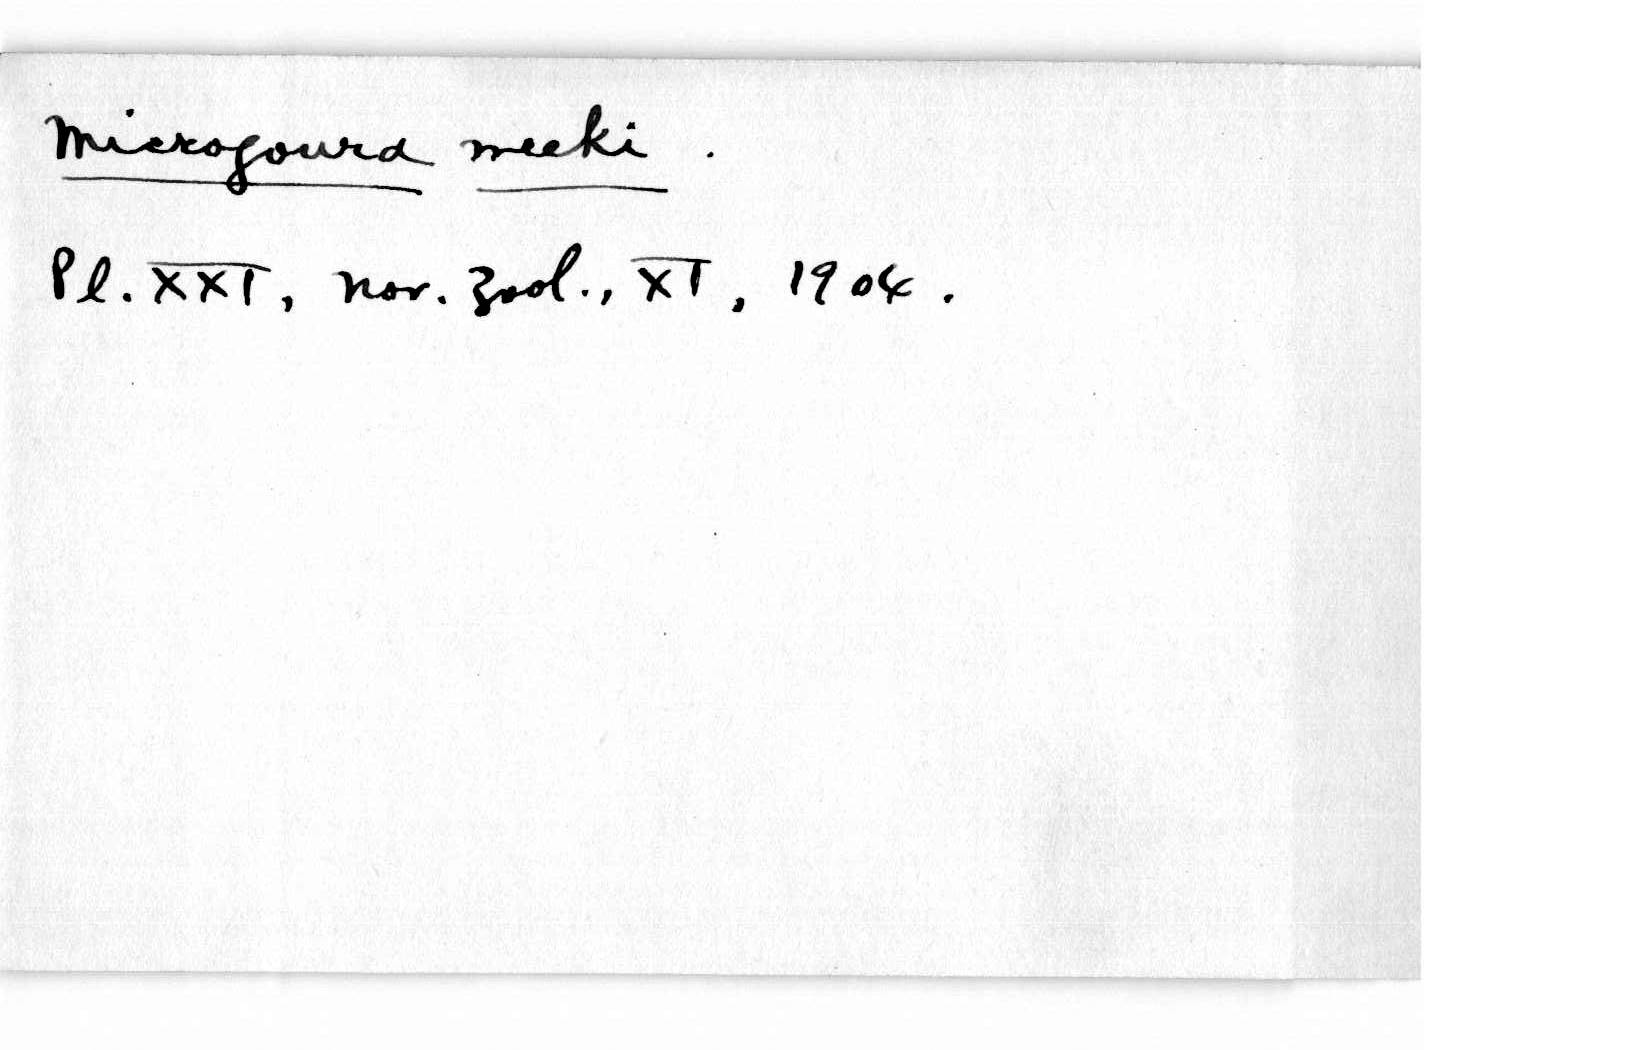 Microgoura meeki.
Pl. XXI, Nov. Zool., XI, 1904.